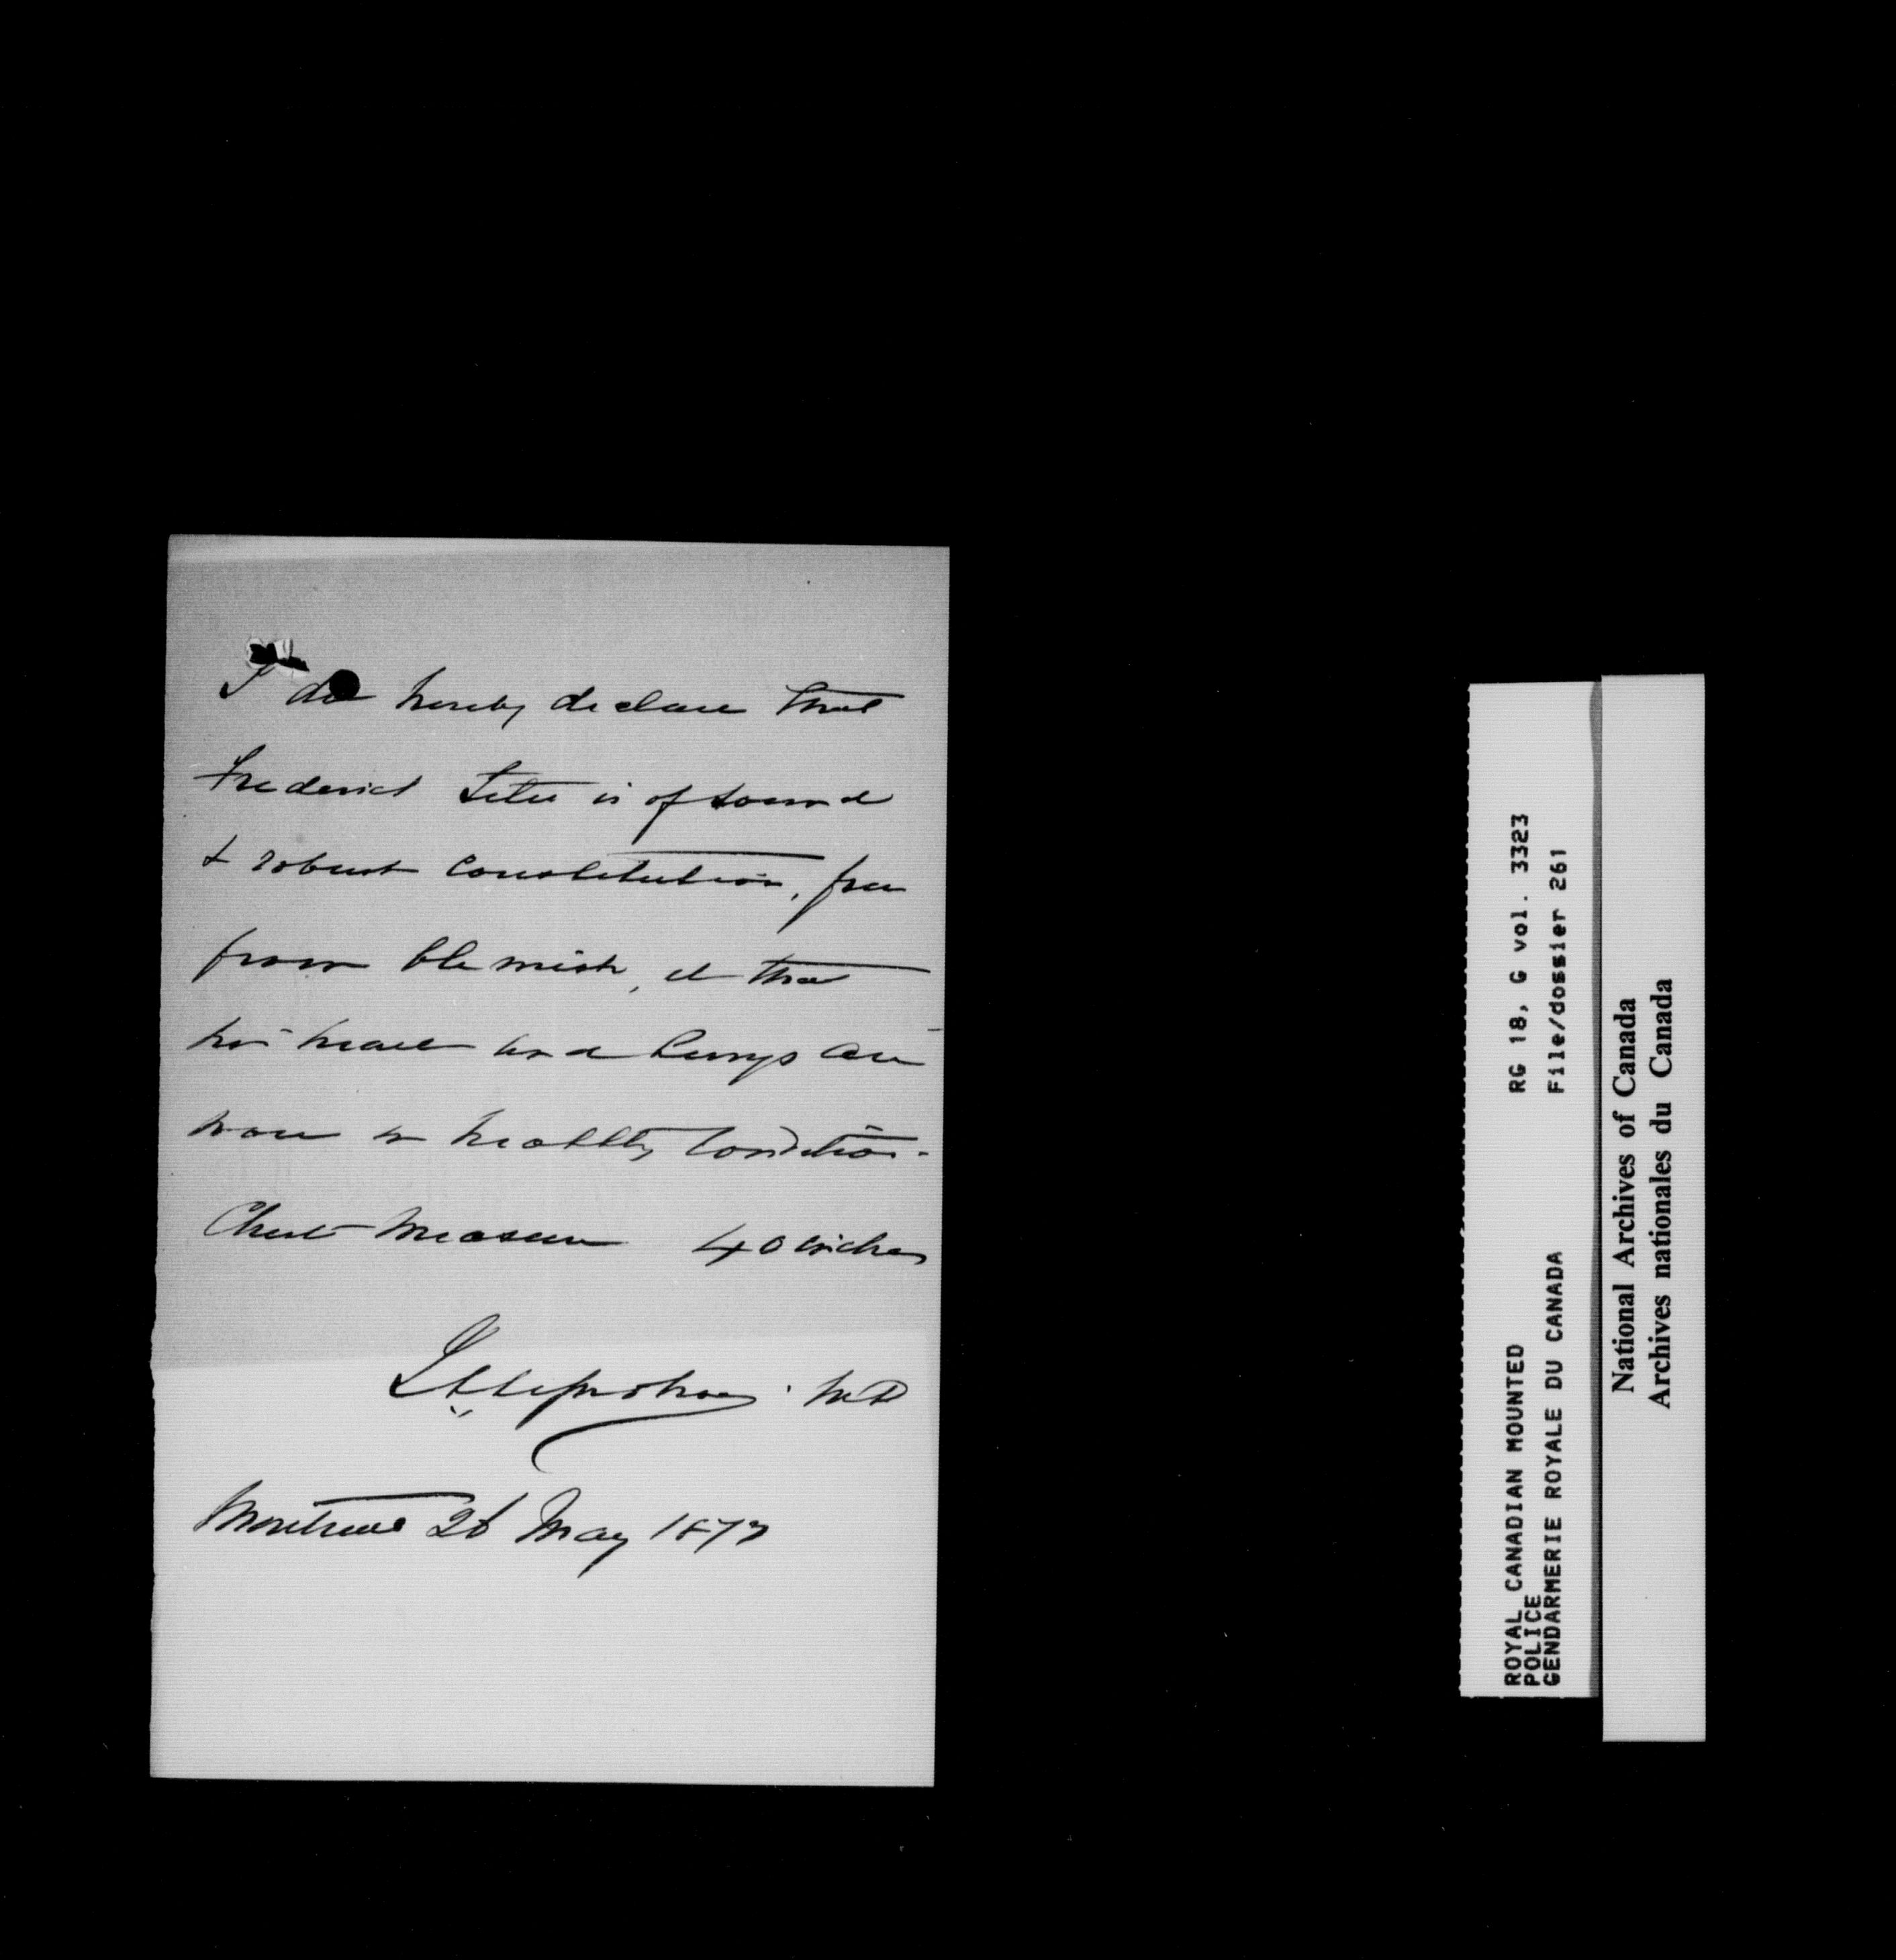 I do hereby declare that
Frederick Tetu is of sound
& robust constitution, free
from blemish, & that
his heart and lungs are
now in healthy condition.
Chest Measure 40 inches
Leprohon MD
Montreal 26 May 1879
ROYAL CANADIAN MOUNTED RG 18, G vol. 3323
POLICE
GENDARMERIE ROYALE DU CANADA File/dossier 261
National Archives of Canada
Archives nationales du Canada